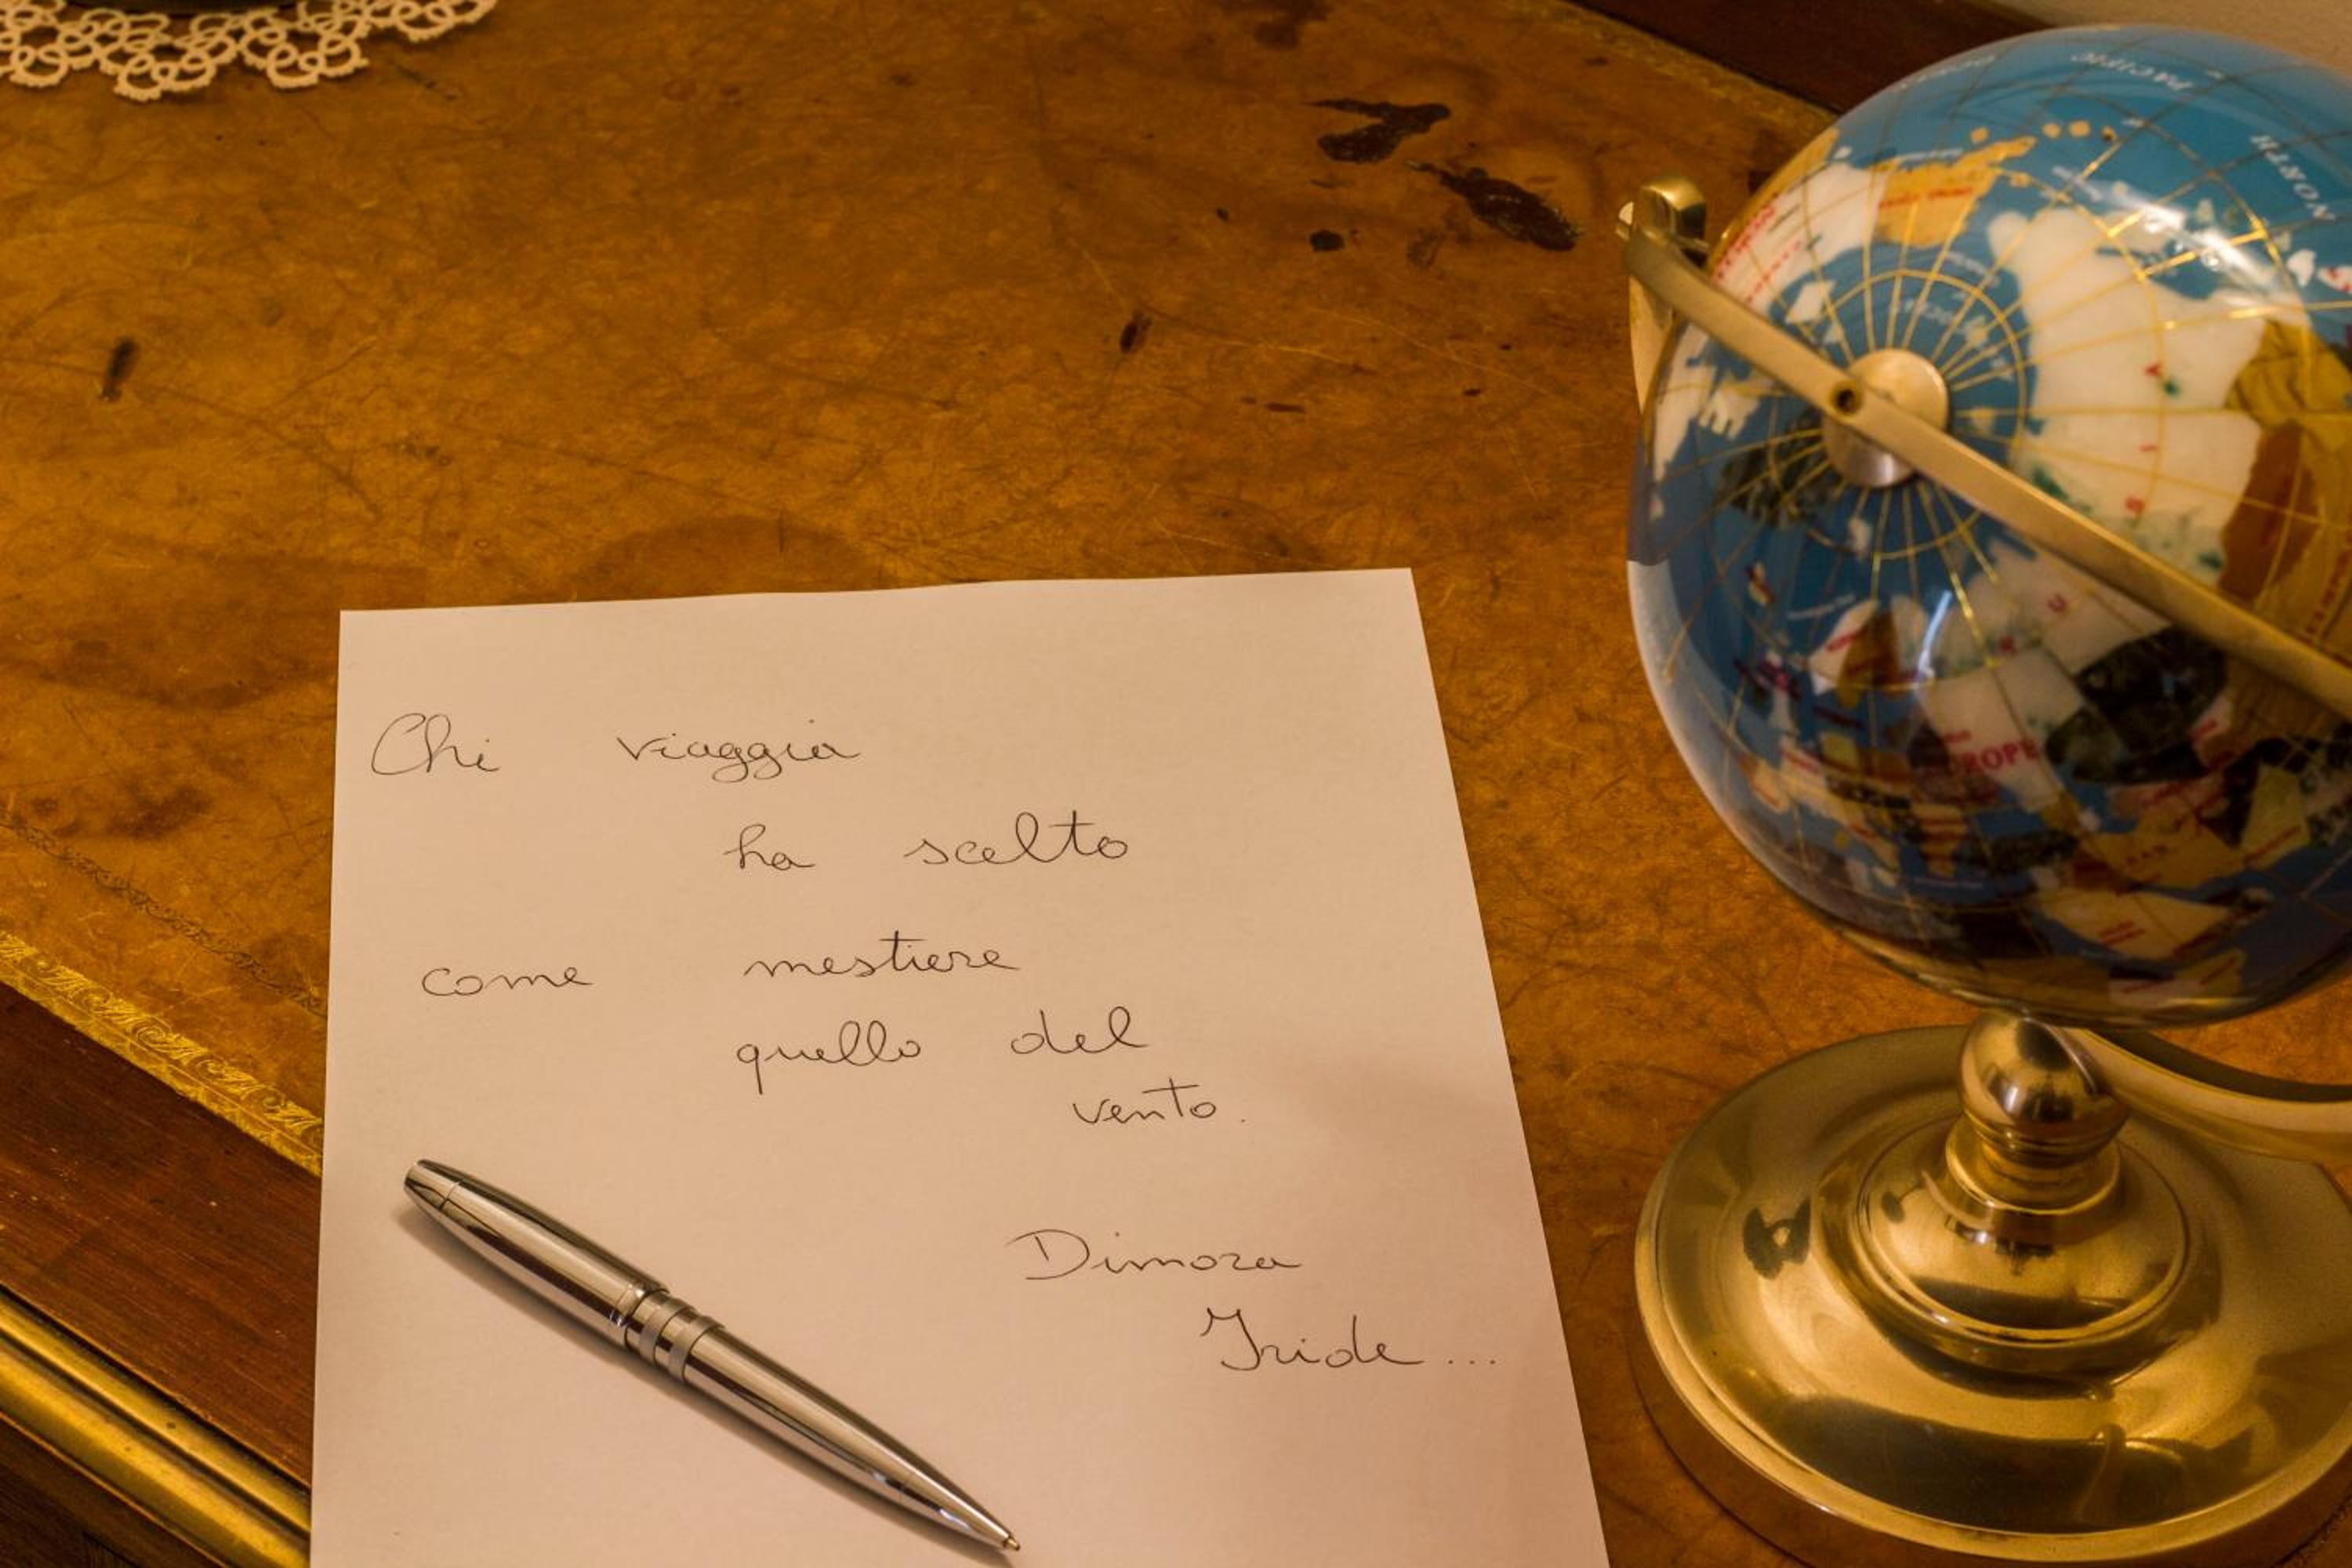 Chi viaggia
ha scelto
come mestiere
quello del
vento.
Dimora
Iride...
PACIFIC
NORTH
EUROPE